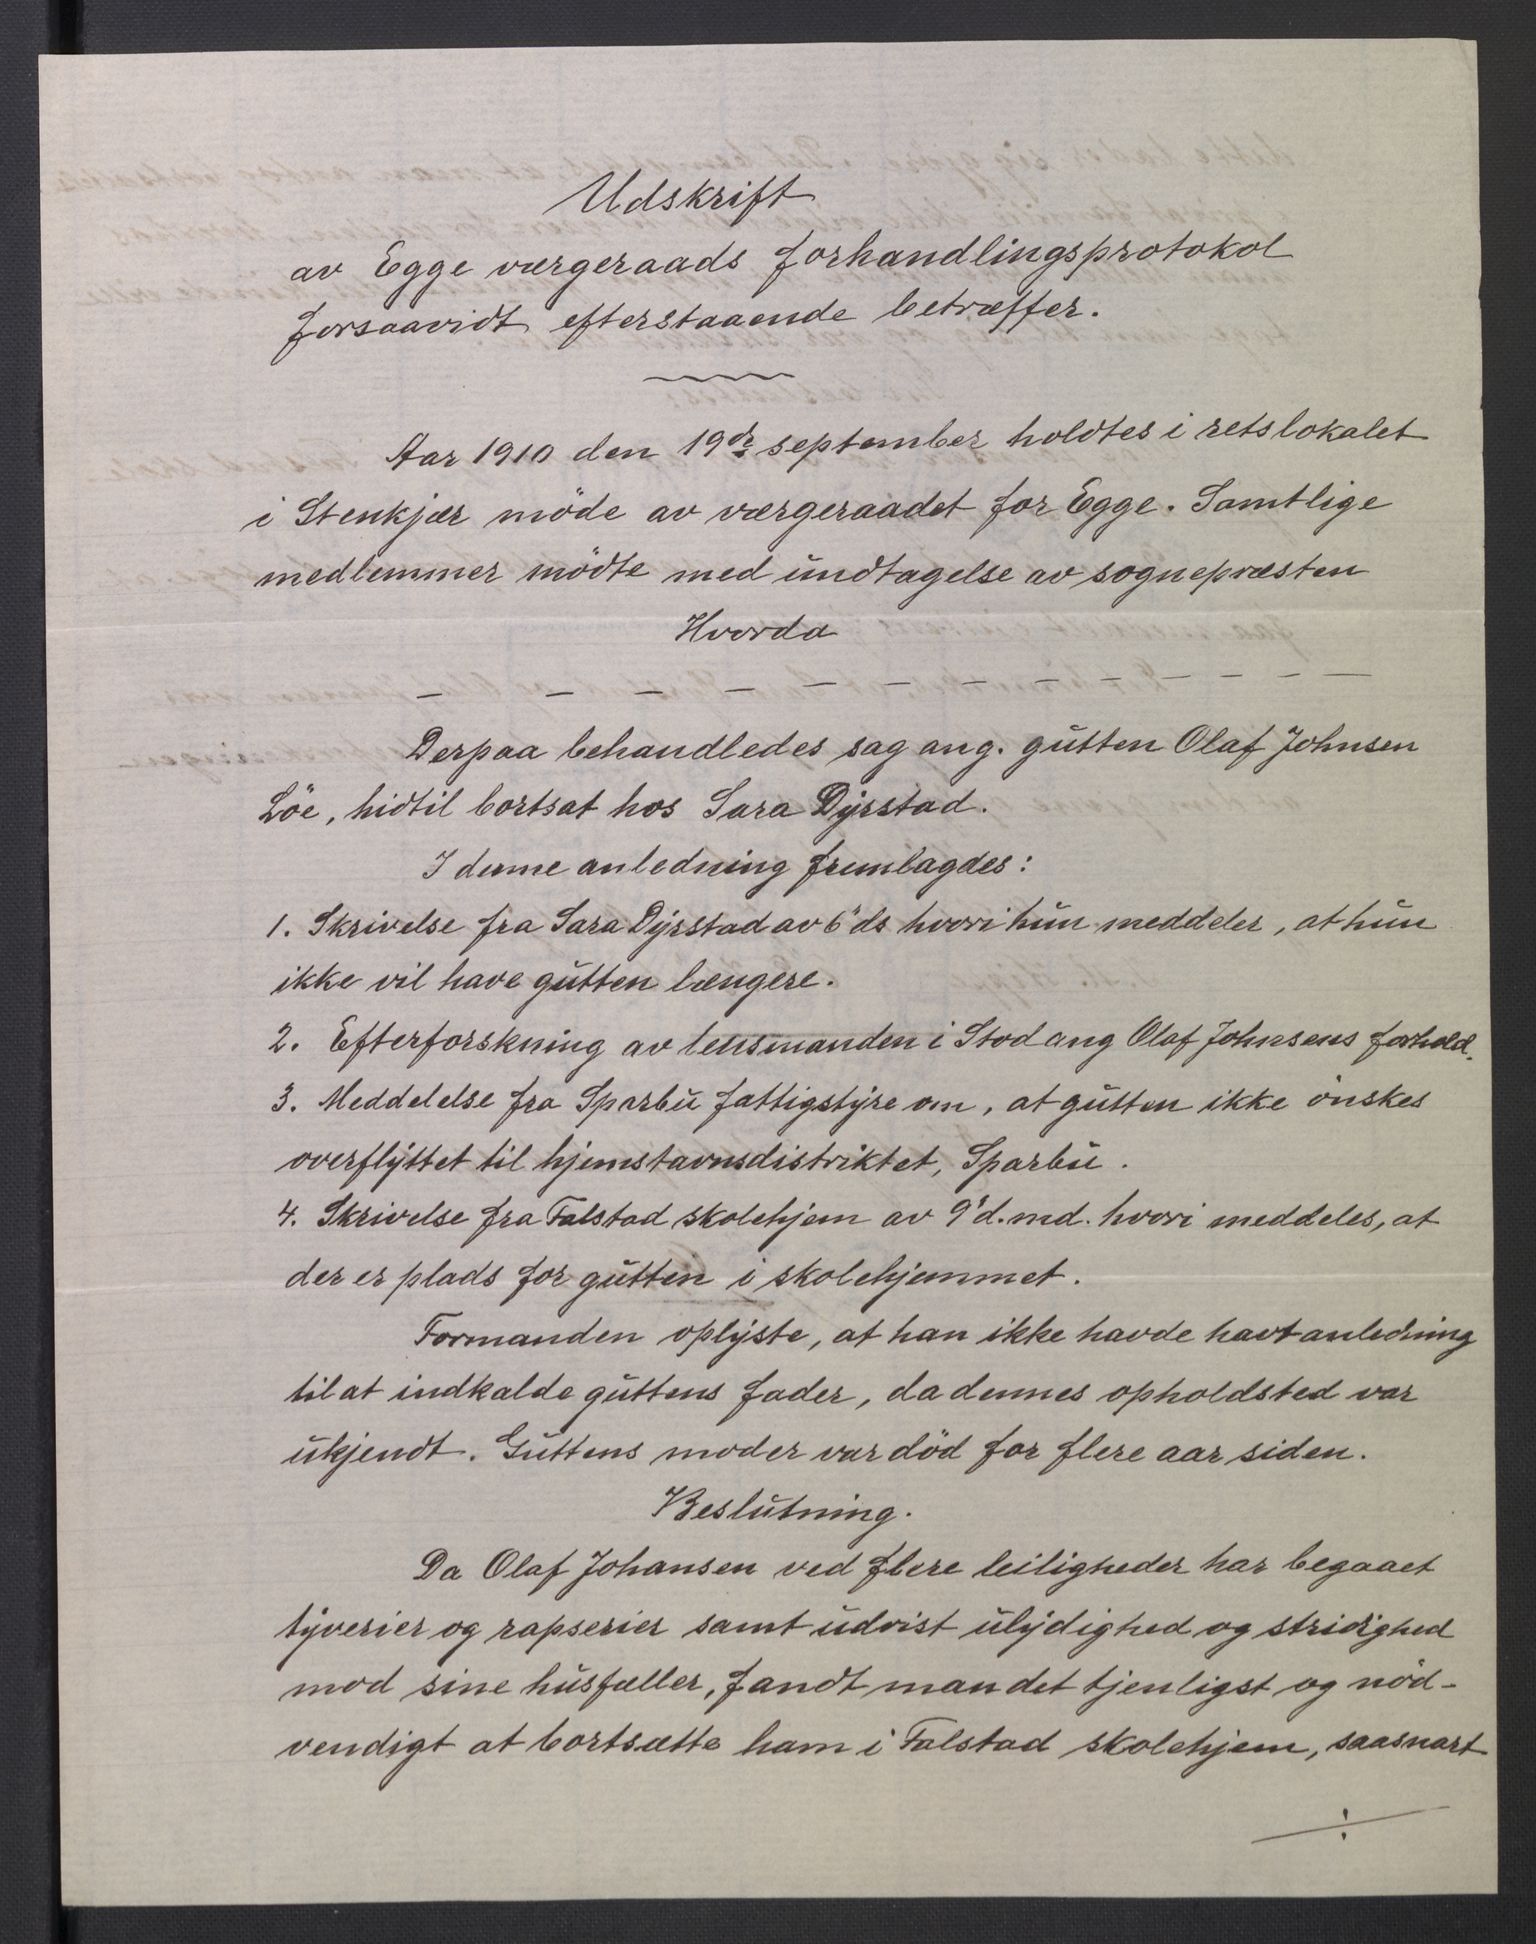 Udskrift
av Egge værgeraads forhandlingsprotokol
forsaavidt efterstaaende betræffer.
Aar 1910 den 19de september holdtes i retslokalet
i Stenkjær möde av værgeraadet for Egge. Samtlige
medlemmer mödte med undtagelse av sognepræsten
Hvorda
— — — — — — — — — — — — —
Derpaa behandledes sag ang. gutten Olaf Johnsen
Löe, hidtil bortsat hos Sara Dyrstad.
I denne anledning fremlagdes:
1. Skrivelse fra Sara Dyrstad av 6' ds hvori hun meddeler, at hun
ikke vil have gutten længere.
2. Efterforskning av lensmanden i Stod ang Olaf Johnsens forhold.
3. Meddelelse fra Sparbu fattigstyre om, at gutten ikke önskes
overflyttet til hjemstavnsdistriktet, Sparbu.
4. Skrivelse fra Falstad skolehjem av 9' d. md. hvori meddeles, at
der er plads for gutten i skolehjemmet.
Formanden oplyste, at han ikke havde havt anledning
til at indkalde guttens fader, da dennes opholdsted var
ukjendt. Guttens moder var död for flere aar siden.
Beslutning.
Da Olaf Johansen ved flere leiligheder har begaaet
tyverier og rapserier samt udvist ulydighed og stridighed
mod sine husfæller, fandt man det tjenligst og nöd-
vendigt at bortsætte ham i Falstad skolehjem, saasnart
÷